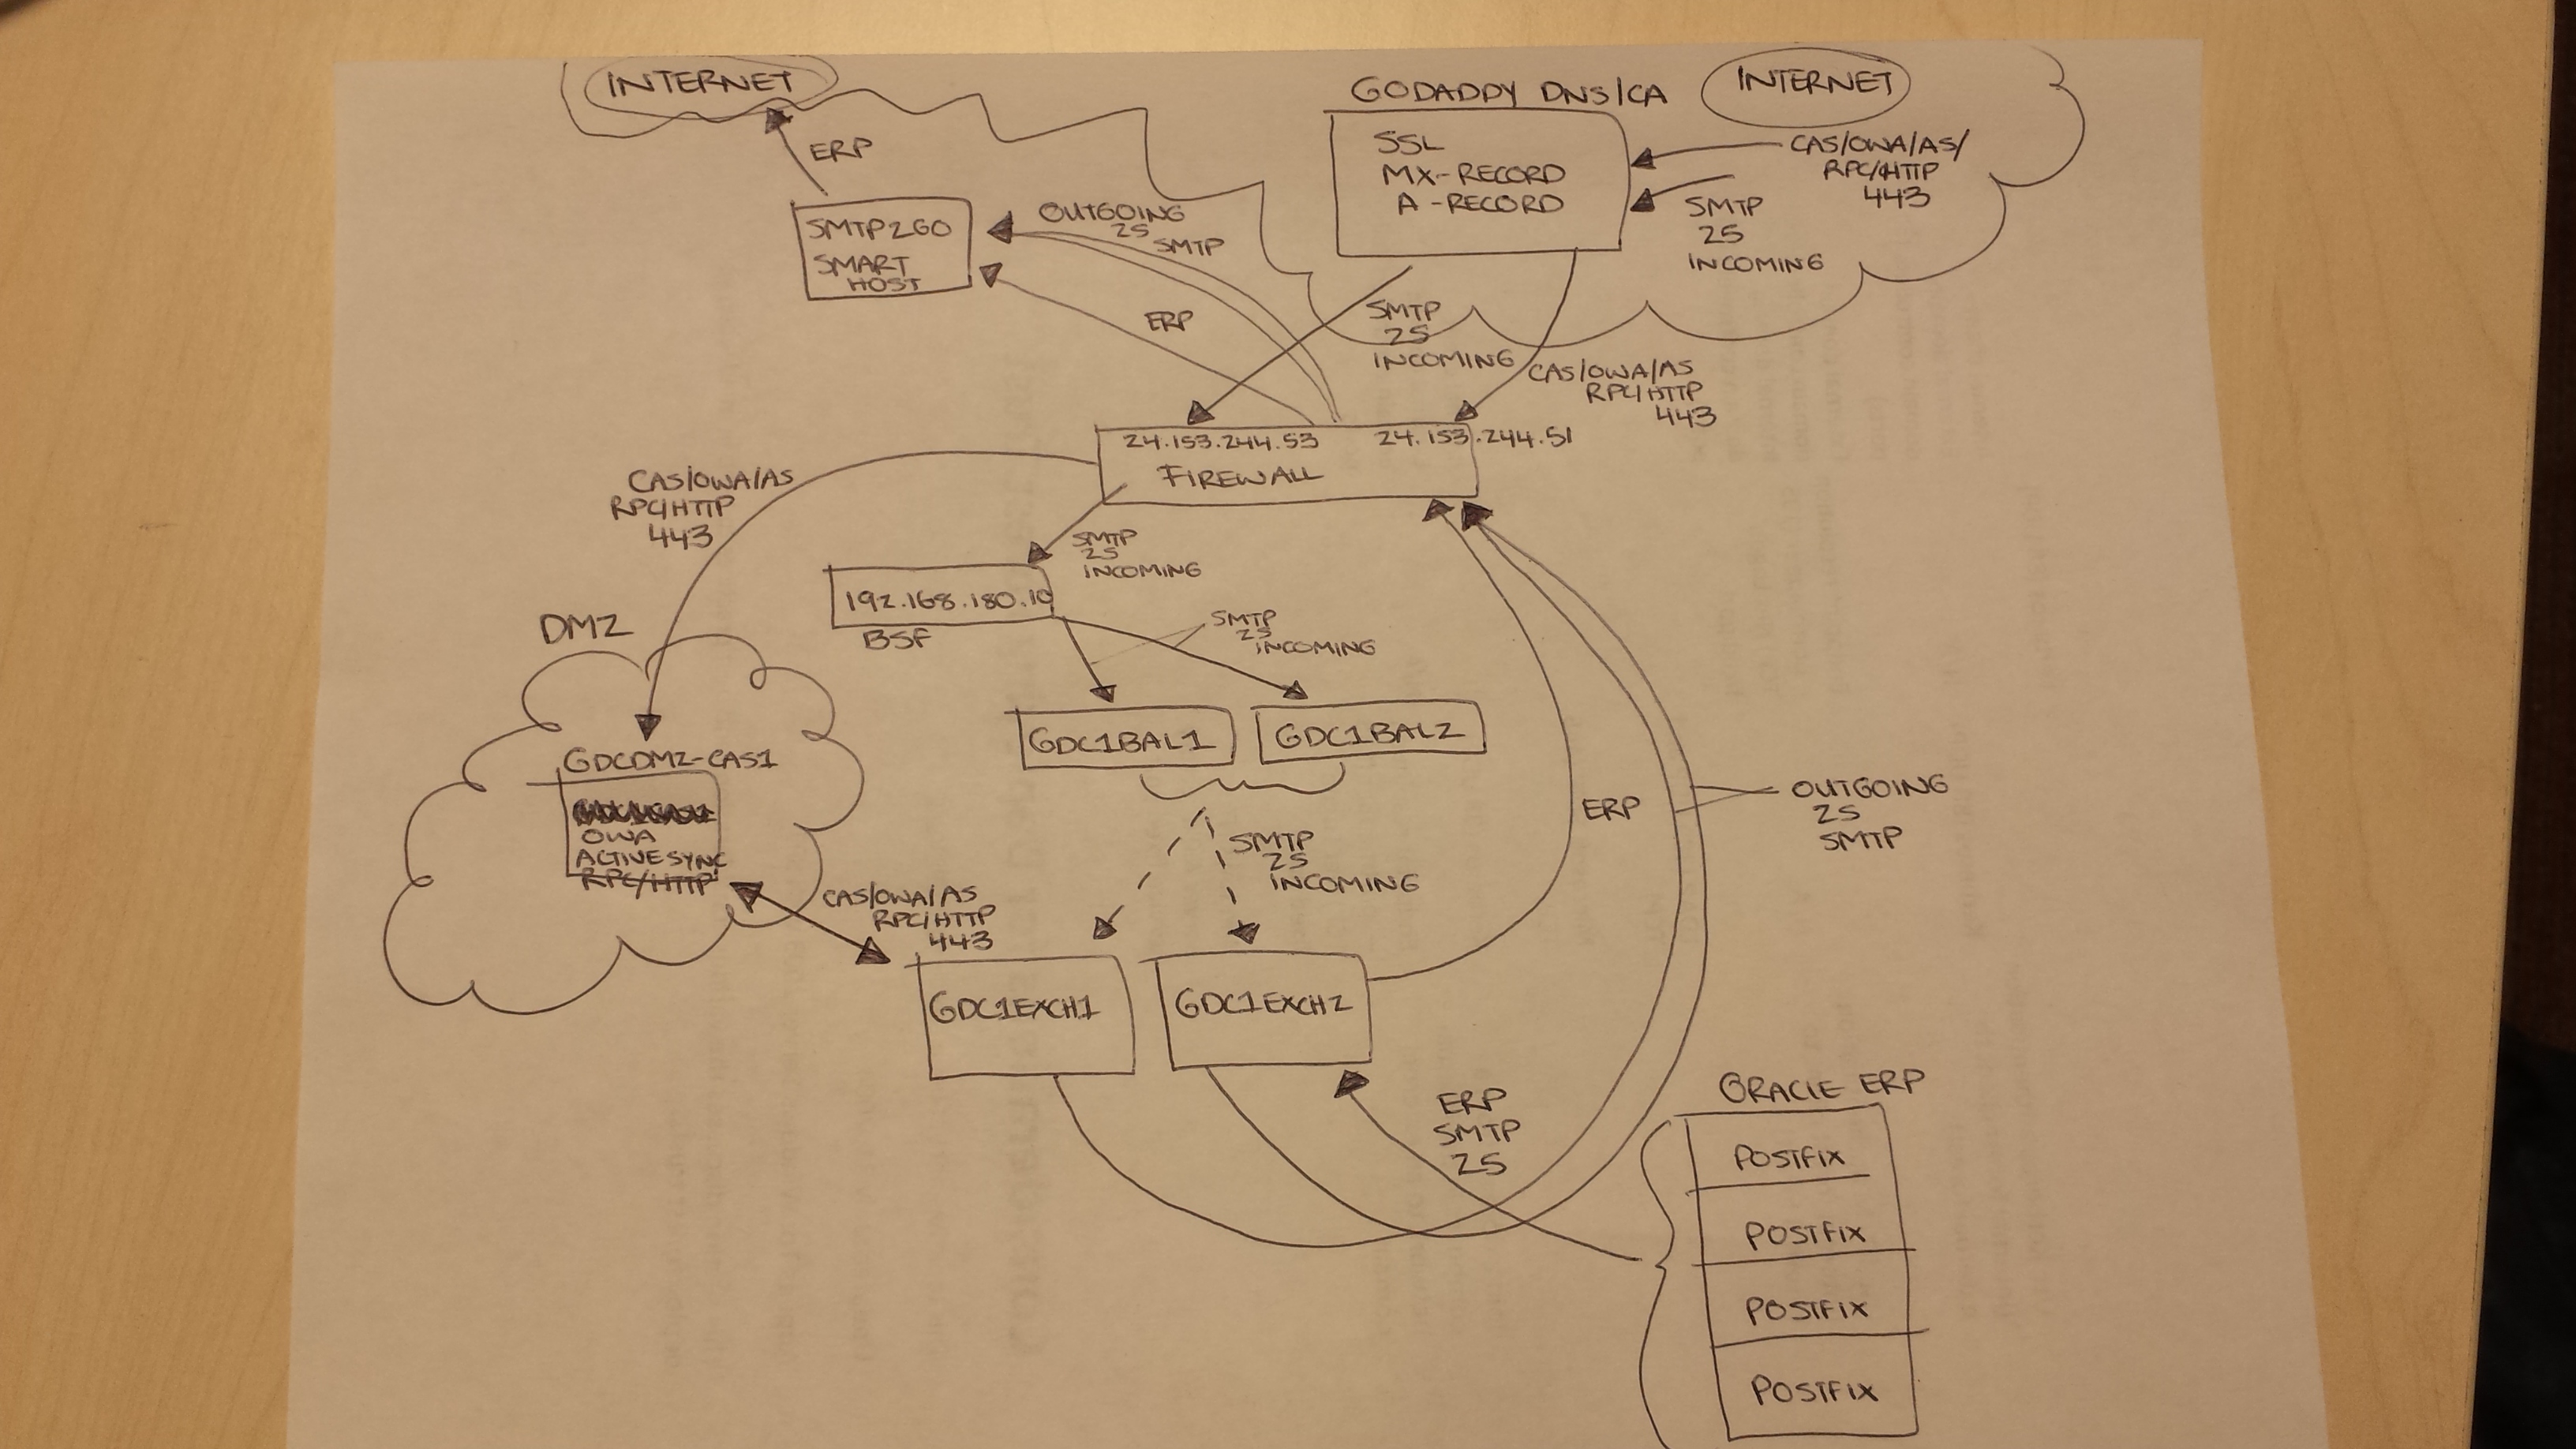 INTERNET
GODADDY DNS/CA
INTERNET
ERP
SSL
MX-RECORD
A-RECORD
CAS/OWA/AS/
RPC/HTTP
443
SMTP
25
INCOMING
SMTP2GO
SMART
HOST
OUTGOING
25
SMTP
ERP
SMTP
25
INCOMING
CAS/OWA/AS
RPC/HTTP
443
24.153.244.53
24.153.244.51
FIREWALL
CAS/OWA/AS
RPC/HTTP
443
SMTP
25
INCOMING
192.168.180.10
BSF
SMTP
25
INCOMING
DMZ
GDC1BAL1
GDC1BAL2
GDCDMZ-CAS1
OWA
ACTIVESYNC
RPC/HTTP
SMTP
25
INCOMING
ERP
OUTGOING
25
SMTP
CAS/OWA/AS
RPC/HTTP
443
GDC1EXCH1
GDC1EXCH2
ERP
SMTP
25
ORACLE ERP
POSTFIX
POSTFIX
POSTFIX
POSTFIX